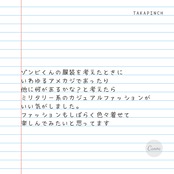 TAKAPINCH
ゾンビくんの服装を考えたときに
いわゆるアメカジで決ったり
他に何があるかな？と考えたら
ミリタリー系のカジュアルファッションが
いい気がしました。
ファッションもしばらく色々着せて
楽しんでみたいと思ってます